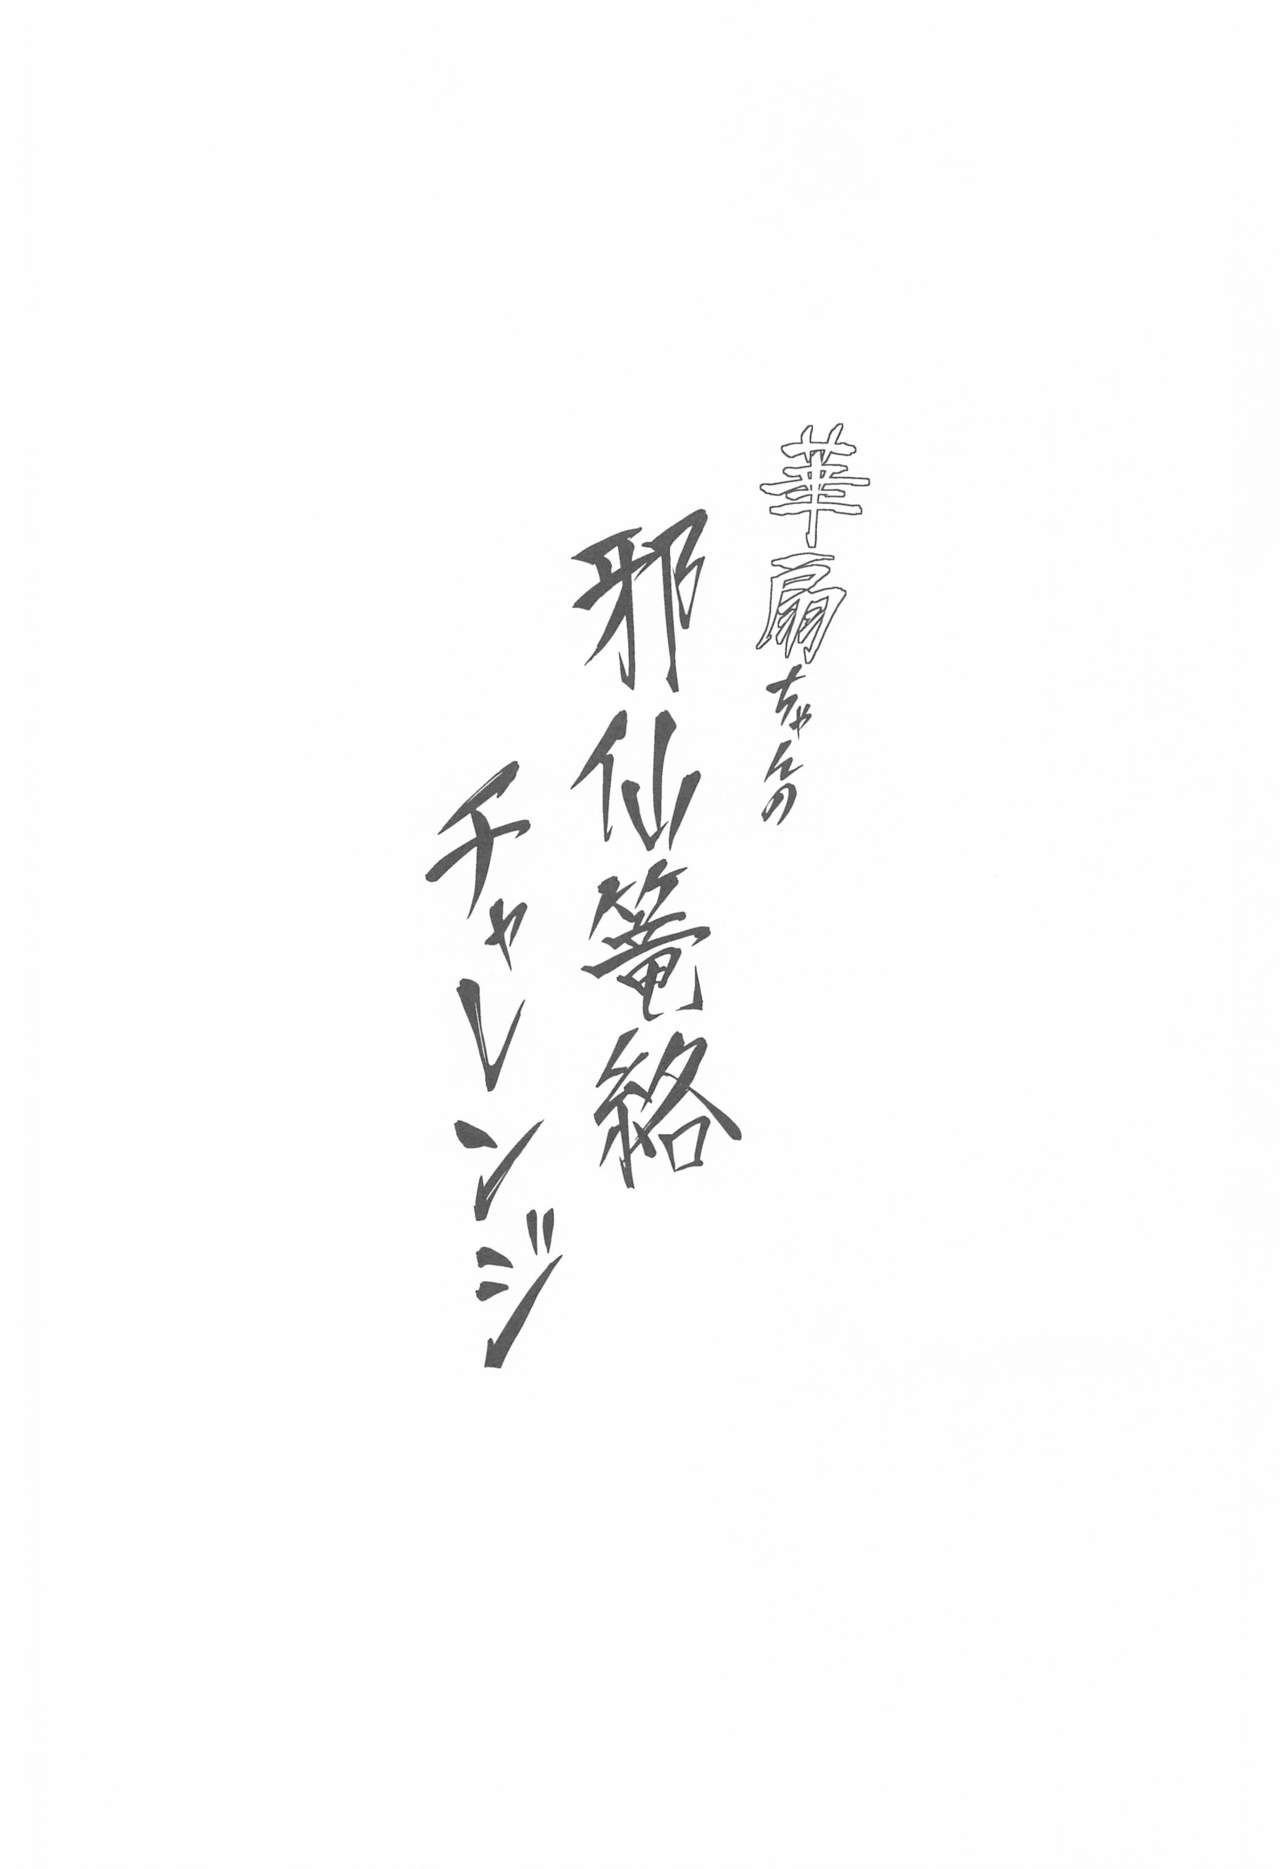 華扇ちゃんの
邪仙篭絡
チャレンジ